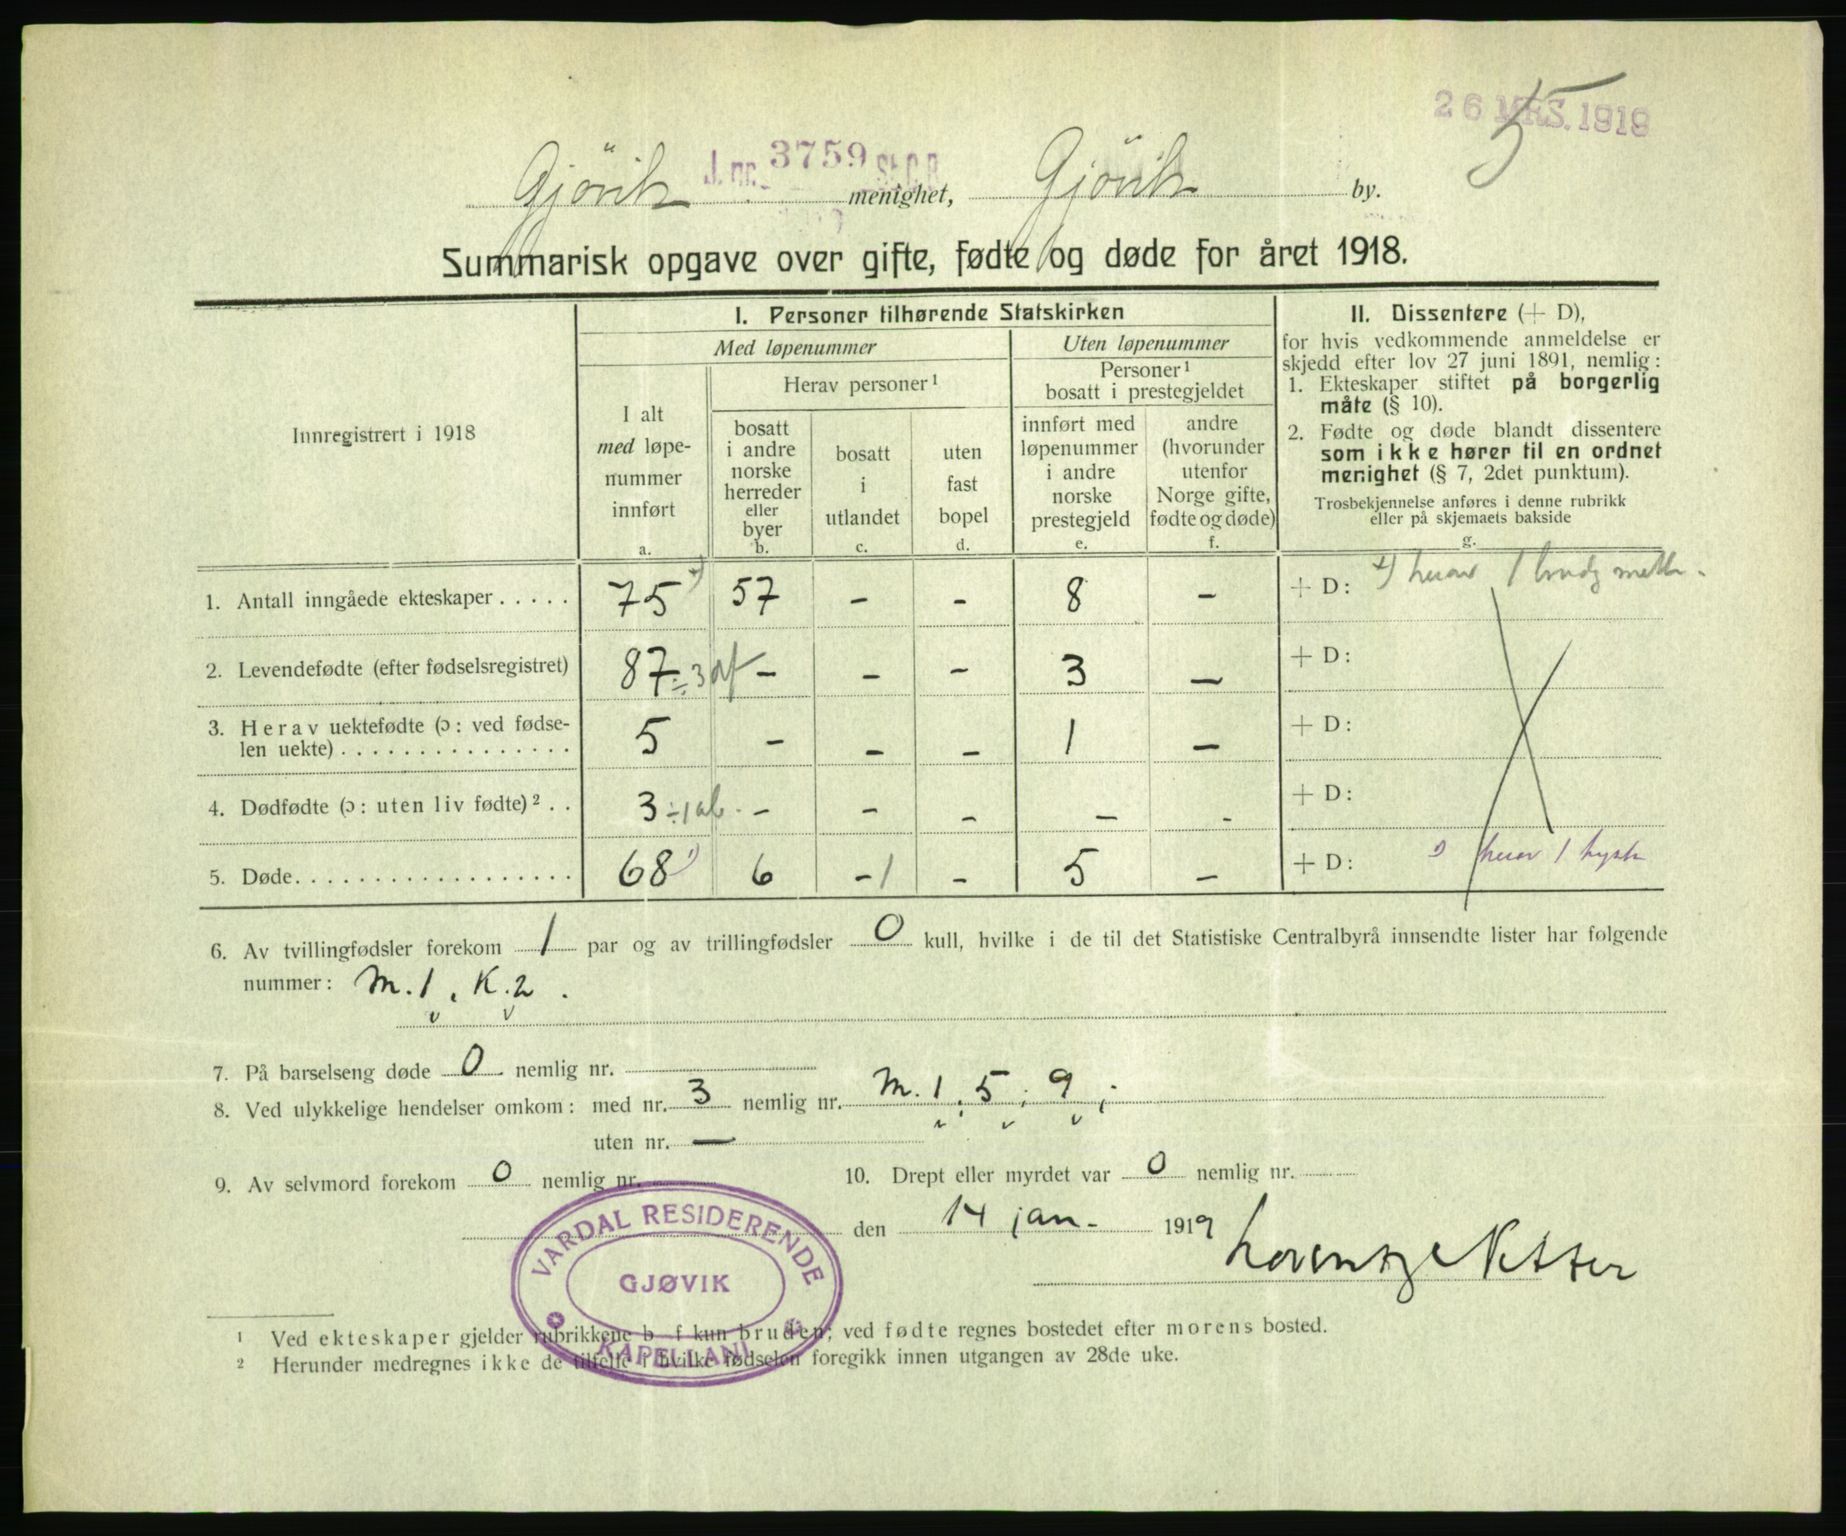 26 MRS. 1919
5
J. nr. 3759 St.C.B.
Gjövik menighet, Gjövik by.
Summarisk opgave over gifte, fødte og døde for året 1918.
Innregistrert i 1918
I. Personer tilhørende Statskirken
Med løpenummer
Uten løpenummer
I alt
med løpe-
nummer
innført
a.
Herav personer¹
bosatt
i andre
norske
herreder
eller
byer
b.
bosatt
i
utlandet
c.
uten
fast
bopel
d.
Personer¹
bosatt i prestegjeldet
innført med
løpenummer
i andre
norske
prestegjeld
e.
andre
(hvorunder
utenfor
Norge gifte,
fødte og døde)
f.
II. Dissentere (+ D),
for hvis vedkommende anmeldelse er
skjedd efter lov 27 juni 1891, nemlig:
1. Ekteskaper stiftet på borgerlig
måte (§ 10).
2. Fødte og døde blandt dissentere
som ikke hører til en ordnet
menighet (§ 7, 2det punktum).
Trosbekjennelse anføres i denne rubrikk
eller på skjemaets bakside
g.
1. Antall inngåede ekteskaper . . . . . 75 57 - - 8 - + D: herav 1
2. Levendefødte (efter fødselsregistret) 87 ÷3 - - - 3 - + D:
3. Herav uektefødte (ɔ: ved fødse-
len uekte) . . . . . . . . . . . . . . . 5 - - - 1 - + D:
4. Dødfødte (ɔ: uten liv fødte)² . . 3 ÷1 - - - - - + D:
5. Døde. . . . . . . . . . . . . . . . . . 68 ¹) 6 -1 - 5 - + D: ¹) herav 1
6. Av tvillingfødsler forekom 1 par og av trillingfødsler 0 kull, hvilke i de til det Statistiske Centralbyrå innsendte lister har følgende
nummer: M. 1, K. 2.
7. På barselseng døde 0 nemlig nr.
8. Ved ulykkelige hendelser omkom: med nr. 3 nemlig nr. M. 1; 5; 9;
uten nr. —
9. Av selvmord forekom 0 nemlig nr.
10. Drept eller myrdet var 0 nemlig nr.
den 14 jan. 1919
VARDAL RESIDERENDE
GJØVIK
KAPELLANI
¹ Ved ekteskaper gjelder rubrikkene b—f kun bruden; ved fødte regnes bostedet efter morens bosted.
² Herunder medregnes ikke de tilfelle i hvilke fødselen foregikk innen utgangen av 28de uke.